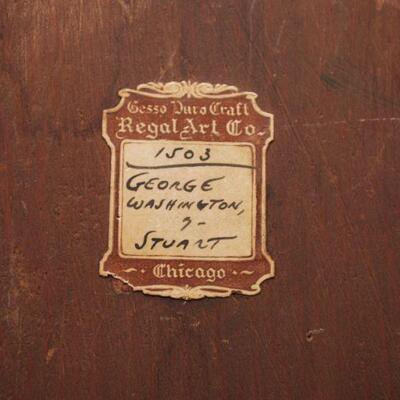 Gesso Duro Craft
Regal Art Co.
1503
GEORGE
WASHINGTON,
STUART
Chicago